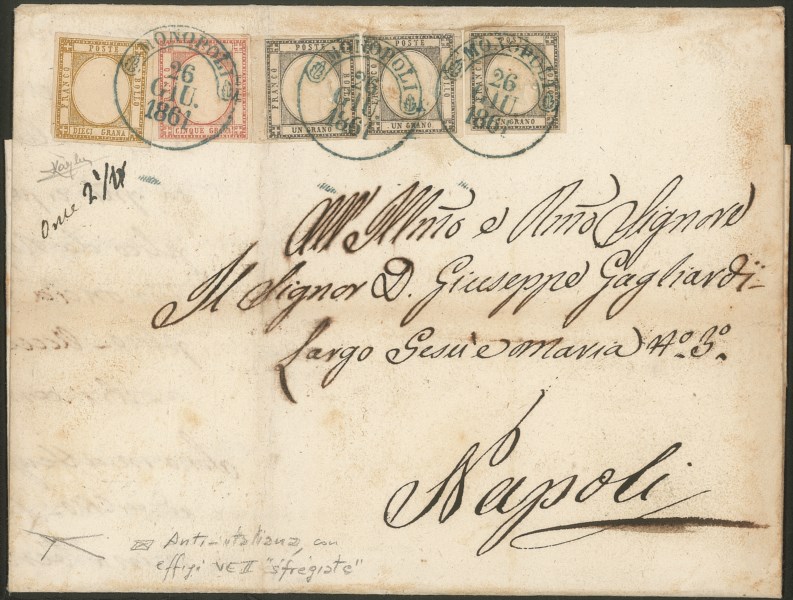 POSTE POSTE POSTE POSTE POSTE
FRANCO BOLLO FRANCO FRANCO FRANCO FRANCO
DIECI GRANA CINQUE GRANA UN GRANO UN GRANO UN GRANO
MONOPOLI MONOPOLI MONOPOLI
26 26 26
GIU. GIU. GIU.
1861 1861 1861
Once 2 1/4
All'Illmo e Rmo Signore
Il Signor D. Giuseppe Gagliardi
Largo Gesù e Maria No. 3o.
Napoli
Anti-italiana, con
effigi VE II "sfregiate"